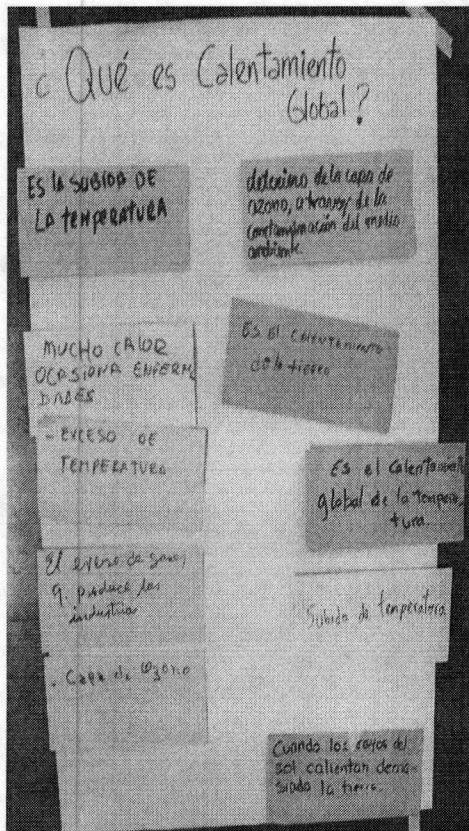 ¿Qué es Calentamiento
Global?
ES LA SUBIDA DE
LA TEMPERATURA
deterioro de la capa de
ozono, a traves de la
contaminación del medio
ambiente.
MUCHO CALOR
OCASIONA ENFERM
DADES
Es el calentamiento
de la tierra
- EXCESO DE
TEMPERATURA
Es el calentamient
global de la tempera
tura.
El exceso de gases
q. produce las
industria
Subida de temperatura
. Capa de Ozono
Cuando los rayos del
sol calientan dema-
siado la tierra.